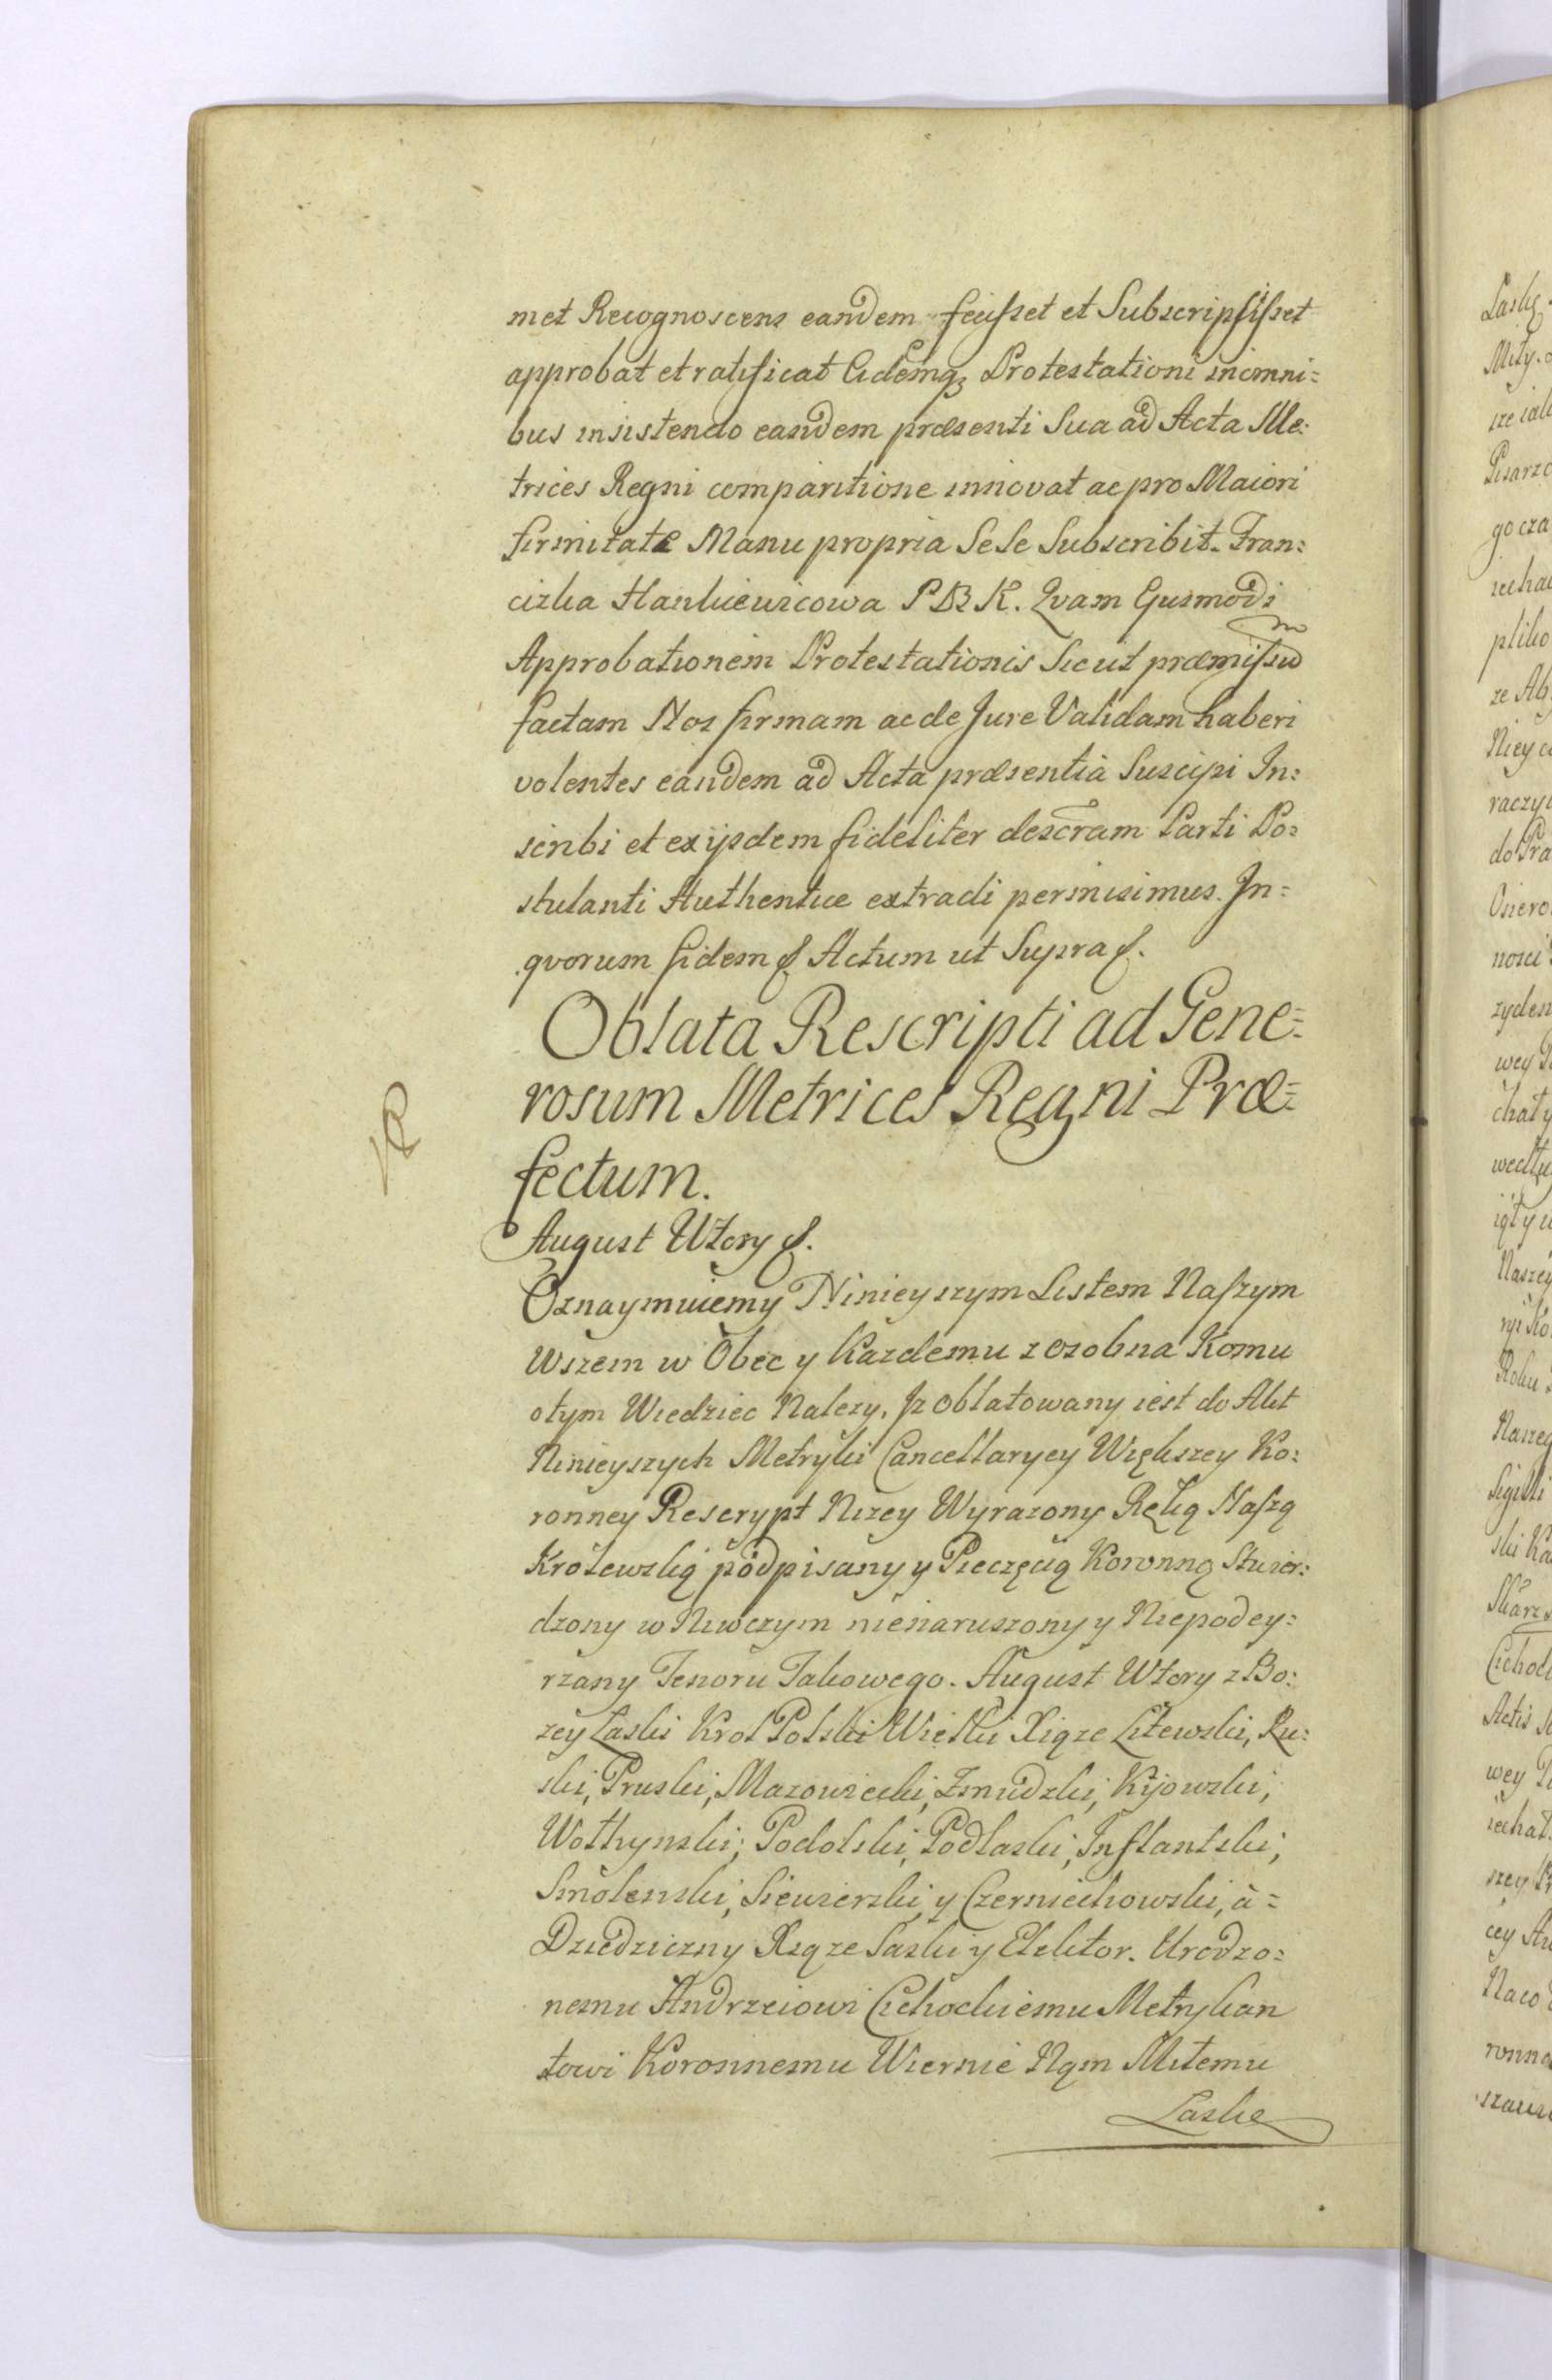 met Recognoscens eandem fecisset et Subscripsisset
approbat et ratificat Eidemq3 Protestationi in omni=
bus insistendo eandem præsenti Sua ad Acta Me:
trices Regni comparitione innovat ac pro Maiori
firmitate Manu propria Se Se Subscribit. Fran:
ciszka Hankiewicowa P B K. Qvam Eiusmodi
Approbationem Protestationis Sicut præmissum
factam Nos firmam ac de Jure Validam haberi
volentes eandem ad Acta præsentia Suscipi In:
scribi et ex ijsdem fideliter descram Parti Po=
stulanti Authentice extradi permisimus. In=
qvorum fidem &. Actum ut Supra &.
Oblata Rescripti ad Gene=
rosum Metrices Regni Præ=
fectum.
August Wtory &.
Oznaymuiemy Ninieyszym Listem Naszym
Wszem w Obec y Kazdemu z osobna Komu
o tym Wiedziec Nalezy, Jz oblatowany iest do Akt
Ninieyszych Metryki Cancellaryey Większey Ko:
ronney Rescrypt Nizey Wyrazony Ręką Naszą
Krolewską podpisany y Pieczęcią Koronną Stwier:
dzony w Niwczym nienaruszony y Niepodey=
rzany Tenoru Takowego. August Wtory z Bo:
zey Łaski Krol Polski Wielki Xiąze Litewski, Ru:
ski, Pruski, Mazowiecki, Zmudzki, Kijowski,
Wołhynski, Podolski, Podlaski, Inflantski,
Smolenski, Siewierski, y Czerniechowski, à=
Dziedziczny Xiąze Saski y Elektor. Urodzo=
nemu Andrzeiowi Cichockiemu Metrykan
towi Koronnemu Wiernie Nąm Miłemu
Łaskę